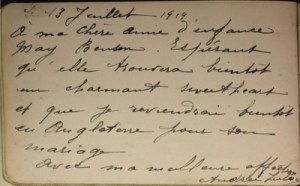 13 Juillet 1919
A ma chère amie d'enfance
May Benson. Espérant
qu'elle trouvera bientot
un charmant sweetheart
et que je reviendrai bientôt
en Angleterre pour son
mariage
Avec ma meilleure
Andrée